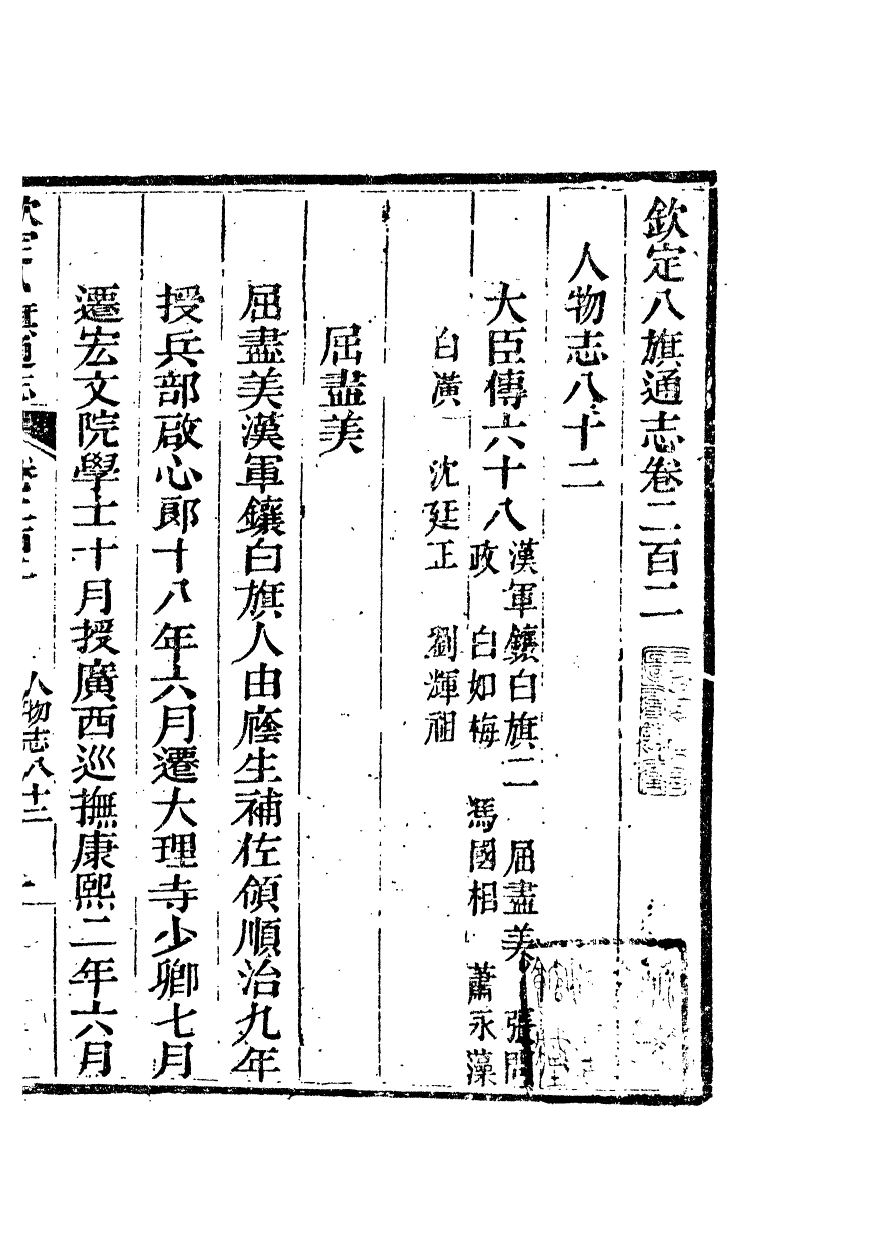 欽定八旗通志卷二百二
人物志八十二
大臣傳六十八
漢軍鑲白旗二　屈盡美　張問
政　白如梅　馮國相　蕭永藻
白潢　沈廷正　劉輝祖
屈盡美
屈盡美漢軍鑲白旗人由廕生補佐領順治九年
授兵部啟心郎十八年六月遷大理寺少卿七月
遷宏文院學士十月授廣西巡撫康熙二年六月
人物志八十二